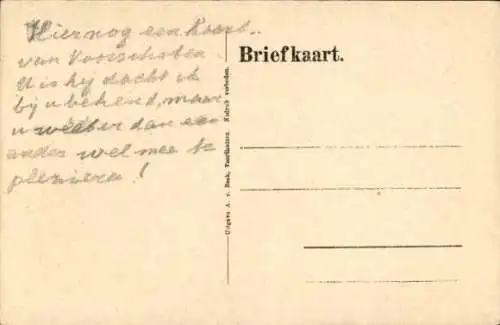 Hier nog een Kaart..
van Voorschoten
U is hij dacht ik
bij u bekend, maar
u weet er dan een
ander wel mee te
plezieren!
Briefkaart.
Uitgave A. v. Beek, Voorschoten. Nadruk verboden.